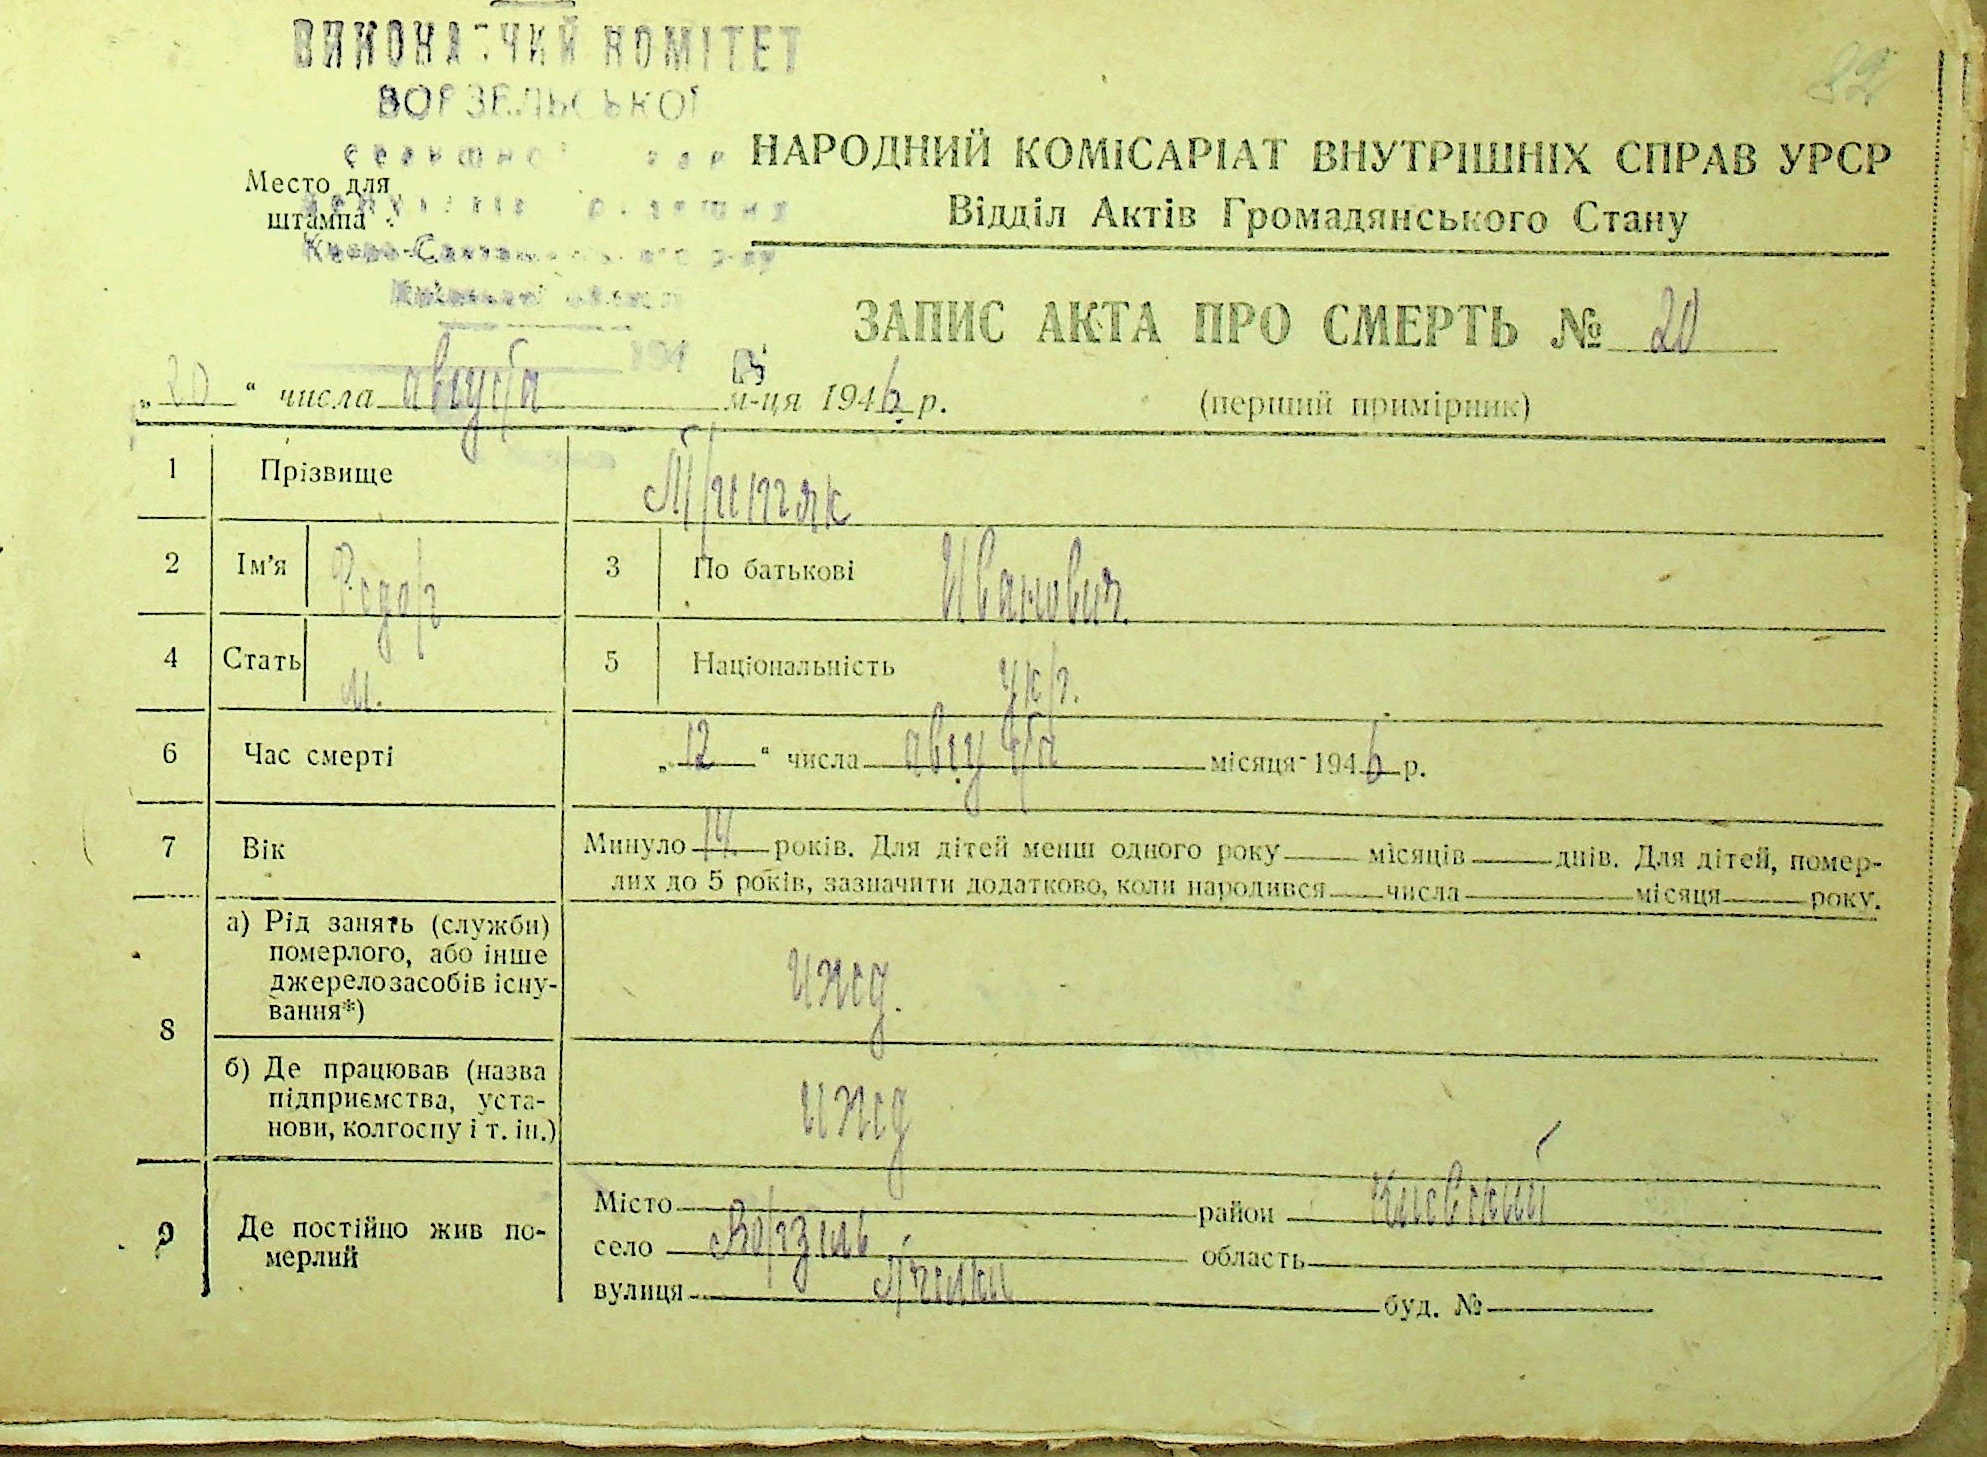 32
ВИКОНАВЧИЙ КОМІТЕТ
ВОРЗЕЛЬСЬКОЇ
Место для
штампа
НАРОДНИЙ КОМІСАРІАТ ВНУТРІШНІХ СПРАВ УРСР
Відділ Актів Громадянського Стану
ЗАПИС АКТА ПРО СМЕРТЬ № 20
„20“ числа августа м-ця 1946 р.
(перший примірник)
1 Прізвище
2 Ім'я Федор 3 По батькові Иванович
4 Стать м. 5 Національність укр.
6 Час смерті „12“ числа августа місяця 1946 р.
7 Вік Минуло 14 років. Для дітей менш одного року місяців днів. Для дітей, помер-
лих до 5 років, зазначити додатково, коли народився числа місяця року.
8 а) Рід занять (служби)
померлого, або інше
джерело засобів існу-
вання*)
ижд.
б) Де працював (назва
підприємства, уста-
нови, колгоспу і т. ін.)
ижд
9 Де постійно жив по-
мерлий
Місто район Киевский
село Ворзель область
вулиця буд. №